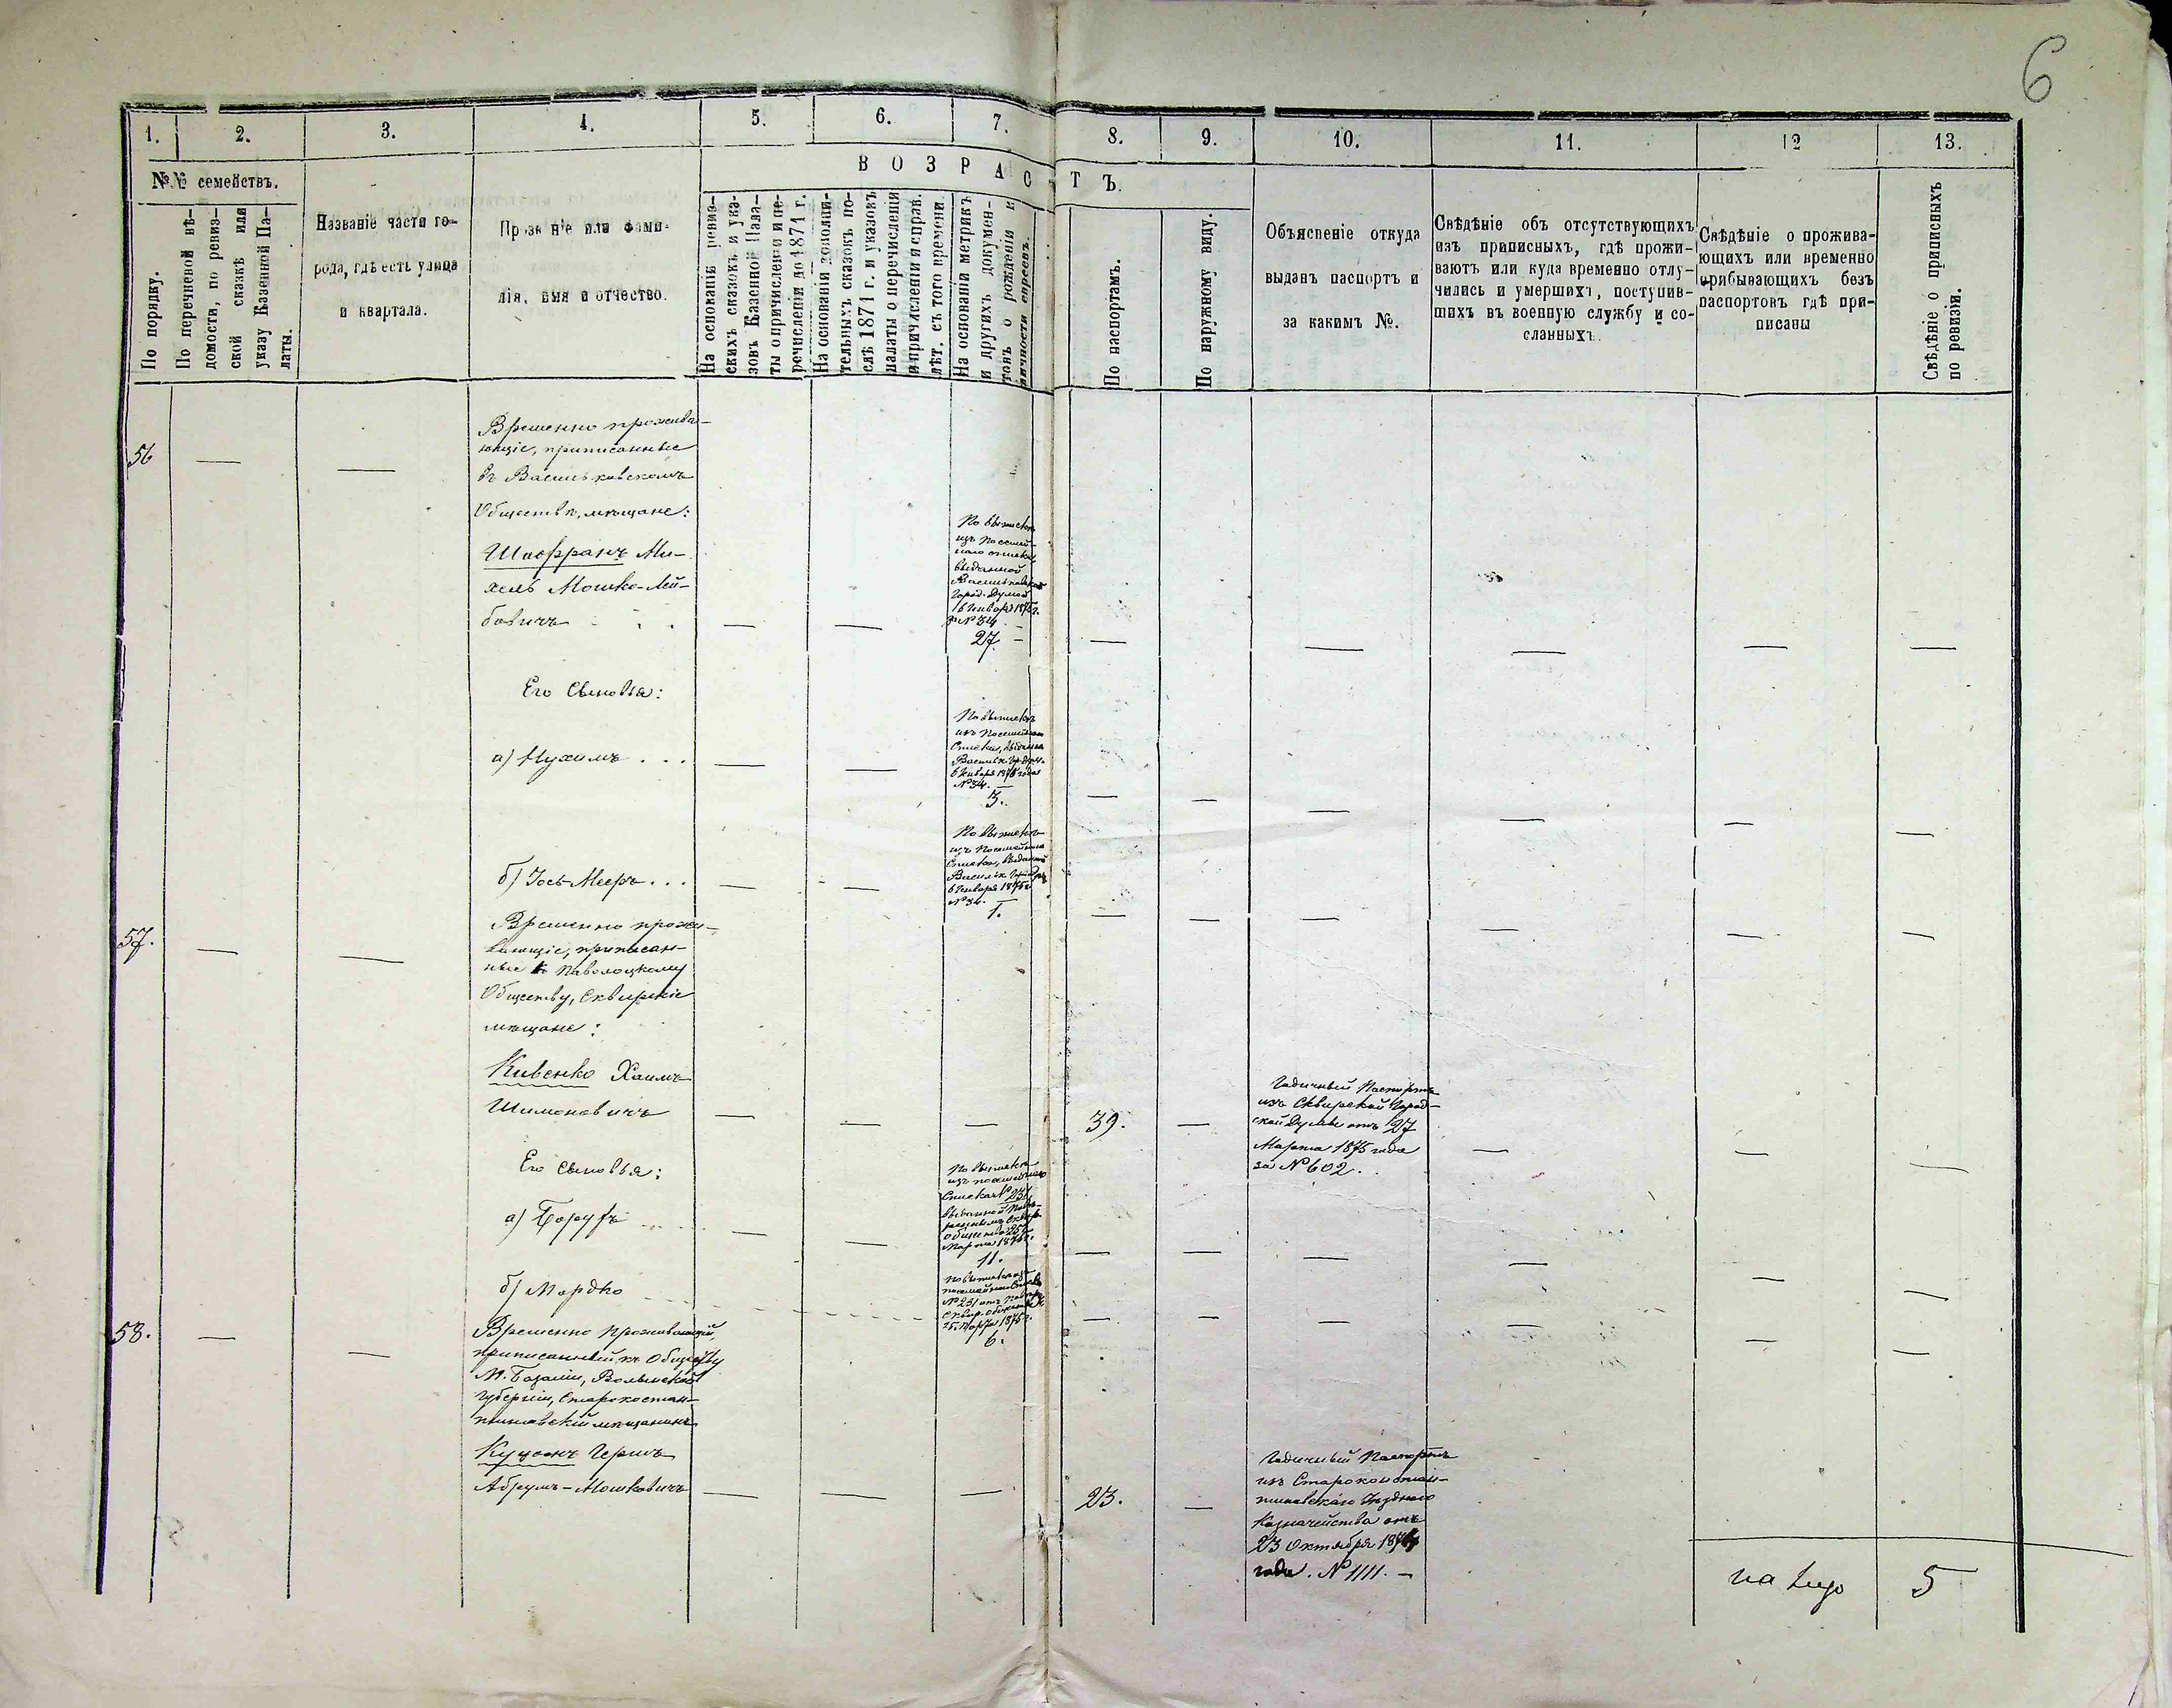 6
1.
2.
3.
4.
5.
6.
7.
8.
9.
10.
11.
12
13.
№№ семействъ.
По порядку.
По перечневой вѣ-
домости, по ревиз-
ской сказкѣ или
указу Казенной Па-
латы.
Названіе части го-
рода, гдѣ есть улица
и квартала.
Прозв ніе или фами-
лія, имя и отчество.
ВОЗРАСТЪ.
На основаніи ревиз-
скихъ сказокъ и ука-
зовъ Казенной Пала-
ты о причисленіи и пе-
речисленіи до 1871 г.
На основаніи дополни-
тельныхъ сказокъ по-
слѣ 1871 г. и указовъ
палаты о перечисленіи
и причисленіи и справ.
лѣт. съ того времени.
На основаніи метрикъ
и другихъ докумен-
товъ о рожденіи и
личности евреевъ.
По паспортамъ.
По наружному виду.
Объясненіе откуда
выданъ паспортъ и
за какимъ №.
Свѣдѣніе объ отсутствующихъ
изъ приписныхъ, гдѣ прожи-
ваютъ или куда временно отлу-
чились и умершихъ, поступив-
шихъ въ военную службу и со-
сланныхъ.
Свѣдѣніе о прожива-
ющихъ или временно
прибывающихъ безъ
паспортовъ гдѣ при-
писаны
Свѣдѣніе о приписныхъ
по ревизіи.
56 — —
Временно прожива-
ющіе, приписанные
въ Васильковскомъ
Обществѣ, мѣщане:
Шафранъ Ми-
хель Мошко-Лей-
бовичъ
По выписке
изъ посемей-
наго списка
выданной
Васильковской
Город. Думой
6 Января 1875 г.
за № 34
27. —
Его Сыновья:
а) Нухимъ . . .
По выпискѣ
изъ Посемейнаго
Списка, выданной
6 Января 1875 года
№ 34. —
3.
б) Іось-Мееръ . . .
По выпискѣ
изъ Посемейнаго
Списка, выданной
6 Января 1875 г.
№ 34. —
1.
57. — —
Временно прожи-
вающіе, приписан-
ные к Паволоцкому
Обществу, Сквирскіе
мѣщане:
Кивенко Хаимъ
Шимоновичъ
39. —
Годичный Паспортъ
изъ Сквирской Город-
ской Думы отъ 27
Марта 1875 года
за № 602.
Его сыновья:
а) Борухъ
По выпискѣ
изъ посемейнаго
Списка № 231
выданной
Марта 1875 г.
11.
б) Мордко
№ 231
25 Марта 1875 г.
6.
58. — —
Временно Проживающій,
приписанный къ Обществу
М. Базаліи, Волынской
Губерніи, Староконстан-
тиновскій мѣщанинъ
Герщъ
Абрумъ-Мошковичъ
23. —
Годичный Паспортъ
изъ Староконстан-
тиновскаго Уѣзднаго
Казначейства отъ
23 Октября 1874
года. № 1111. —
на лицо 5